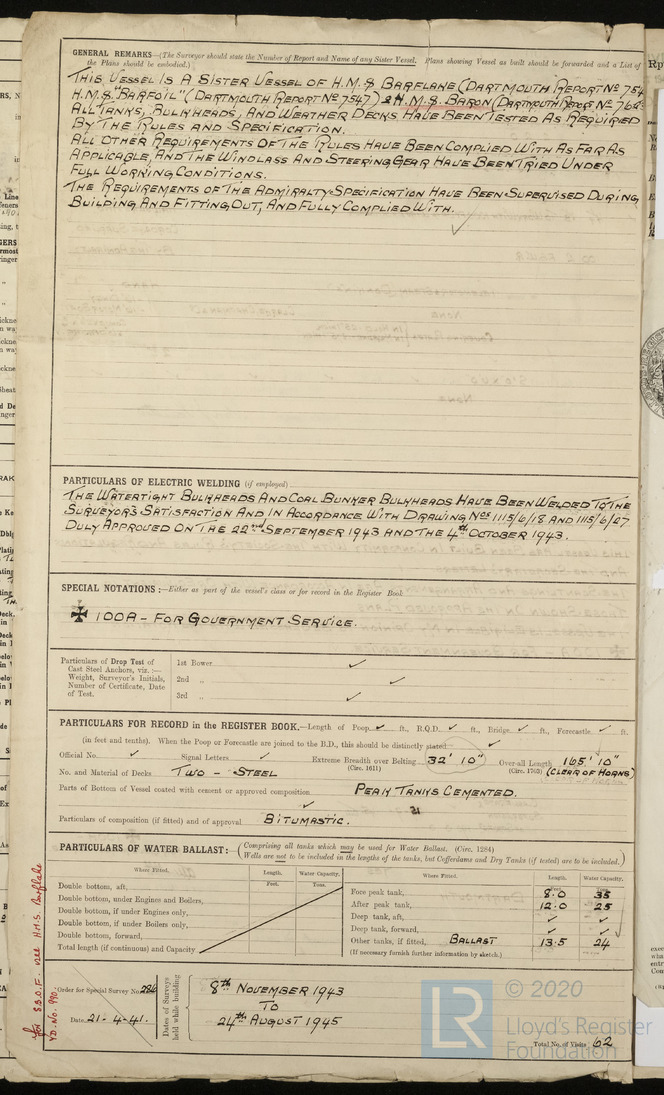 GENERAL REMARKS—(The Surveyor should state the Number of Report and Name of any Sister Vessel. Plans showing Vessel as built should be forwarded and a List of
the Plans should be embodied.)
THIS VESSEL IS A SISTER VESSEL OF H.M.S BARFLANE (DARTMOUTH REPORT Nº 754
H.M.S. "BARFOIL" (DARTMOUTH REPORT Nº 7547) & H.M.S. BARON (DARTMOUTH REPORT Nº
ALL TANKS, BULKHEADS, AND WEATHER DECKS HAVE BEEN TESTED AS REQUIRED
BY THE RULES AND SPECIFICATION.
ALL OTHER REQUIREMENTS OF THE RULES HAVE BEEN COMPLIED WITH AS FAR AS
APPLICABLE, AND THE WINDLASS AND STEERING GEAR HAVE BEEN TRIED UNDER
FULL WORKING CONDITIONS.
THE REQUIREMENTS OF THE ADMIRALTY SPECIFICATION HAVE BEEN SUPERVISED DURING
BUILDING AND FITTING OUT, AND FULLY COMPLIED WITH.
PARTICULARS OF ELECTRIC WELDING (if employed)
THE WATERTIGHT BULKHEADS AND COAL BUNKER BULKHEADS HAVE BEEN WELDED TO THE
SURVEYOR'S SATISFACTION AND IN ACCORDANCE WITH DRAWING Nos 1115/6/18 AND 1115/6/27
DULY APPROVED ON THE 22nd SEPTEMBER 1943 AND THE 4th OCTOBER 1943.
SPECIAL NOTATIONS :—Either as part of the vessel's class or for record in the Register Book
✠ 100A – FOR GOVERNMENT SERVICE.
Particulars of Drop Test of
Cast Steel Anchors, viz. :—
Weight, Surveyor's Initials,
Number of Certificate, Date
of Test.
1st Bower ✓
2nd „ ✓
3rd „ ✓
PARTICULARS FOR RECORD in the REGISTER BOOK.—Length of Poop ✓ ft., R.Q.D. ✓ ft., Bridge ✓ ft., Forecastle ✓ ft.
(in feet and tenths). When the Poop or Forecastle are joined to the B.D., this should be distinctly stated ✓
Official No. ✓ Signal Letters ✓ Extreme Breadth over Belting 32' 10" Over-all Length 165' 10"
(Circ. 1611) (Circ. 1703) (CLEAR OF HORNS)
No. and Material of Decks TWO – STEEL
Parts of Bottom of Vessel coated with cement or approved composition PEAK TANKS CEMENTED.
✓
Particulars of composition (if fitted) and of approval BITUMASTIC.
PARTICULARS OF WATER BALLAST:—(Comprising all tanks which may be used for Water Ballast. (Circ. 1284)
Wells are not to be included in the lengths of the tanks, but Cofferdams and Dry Tanks (if tested) are to be included.)
Where Fitted. Length. Water Capacity.
Feet. Tons.
Double bottom, aft,
Double bottom, under Engines and Boilers,
Double bottom, if under Engines only,
Double bottom, if under Boilers only,
Double bottom, forward,
Total length (if continuous) and Capacity
Where Fitted. Length. Water Capacity.
Fore peak tank, 8.0 35
After peak tank, 12.0 25
Deep tank, aft, ✓ ✓
Deep tank, forward, ✓ ✓
Other tanks, if fitted, BALLAST 13.5 24
(If necessary furnish further information by sketch.)
for S.B.O.F. see H.M.S. Barflake
YD. No. 990.
Order for Special Survey No. 284
Date 21-4-41.
Dates of Surveys
held while building
8th NOVEMBER 1943
TO
24th AUGUST 1945
Total No. of Visits 62
LR
© 2020
Lloyd's Register
Foundation